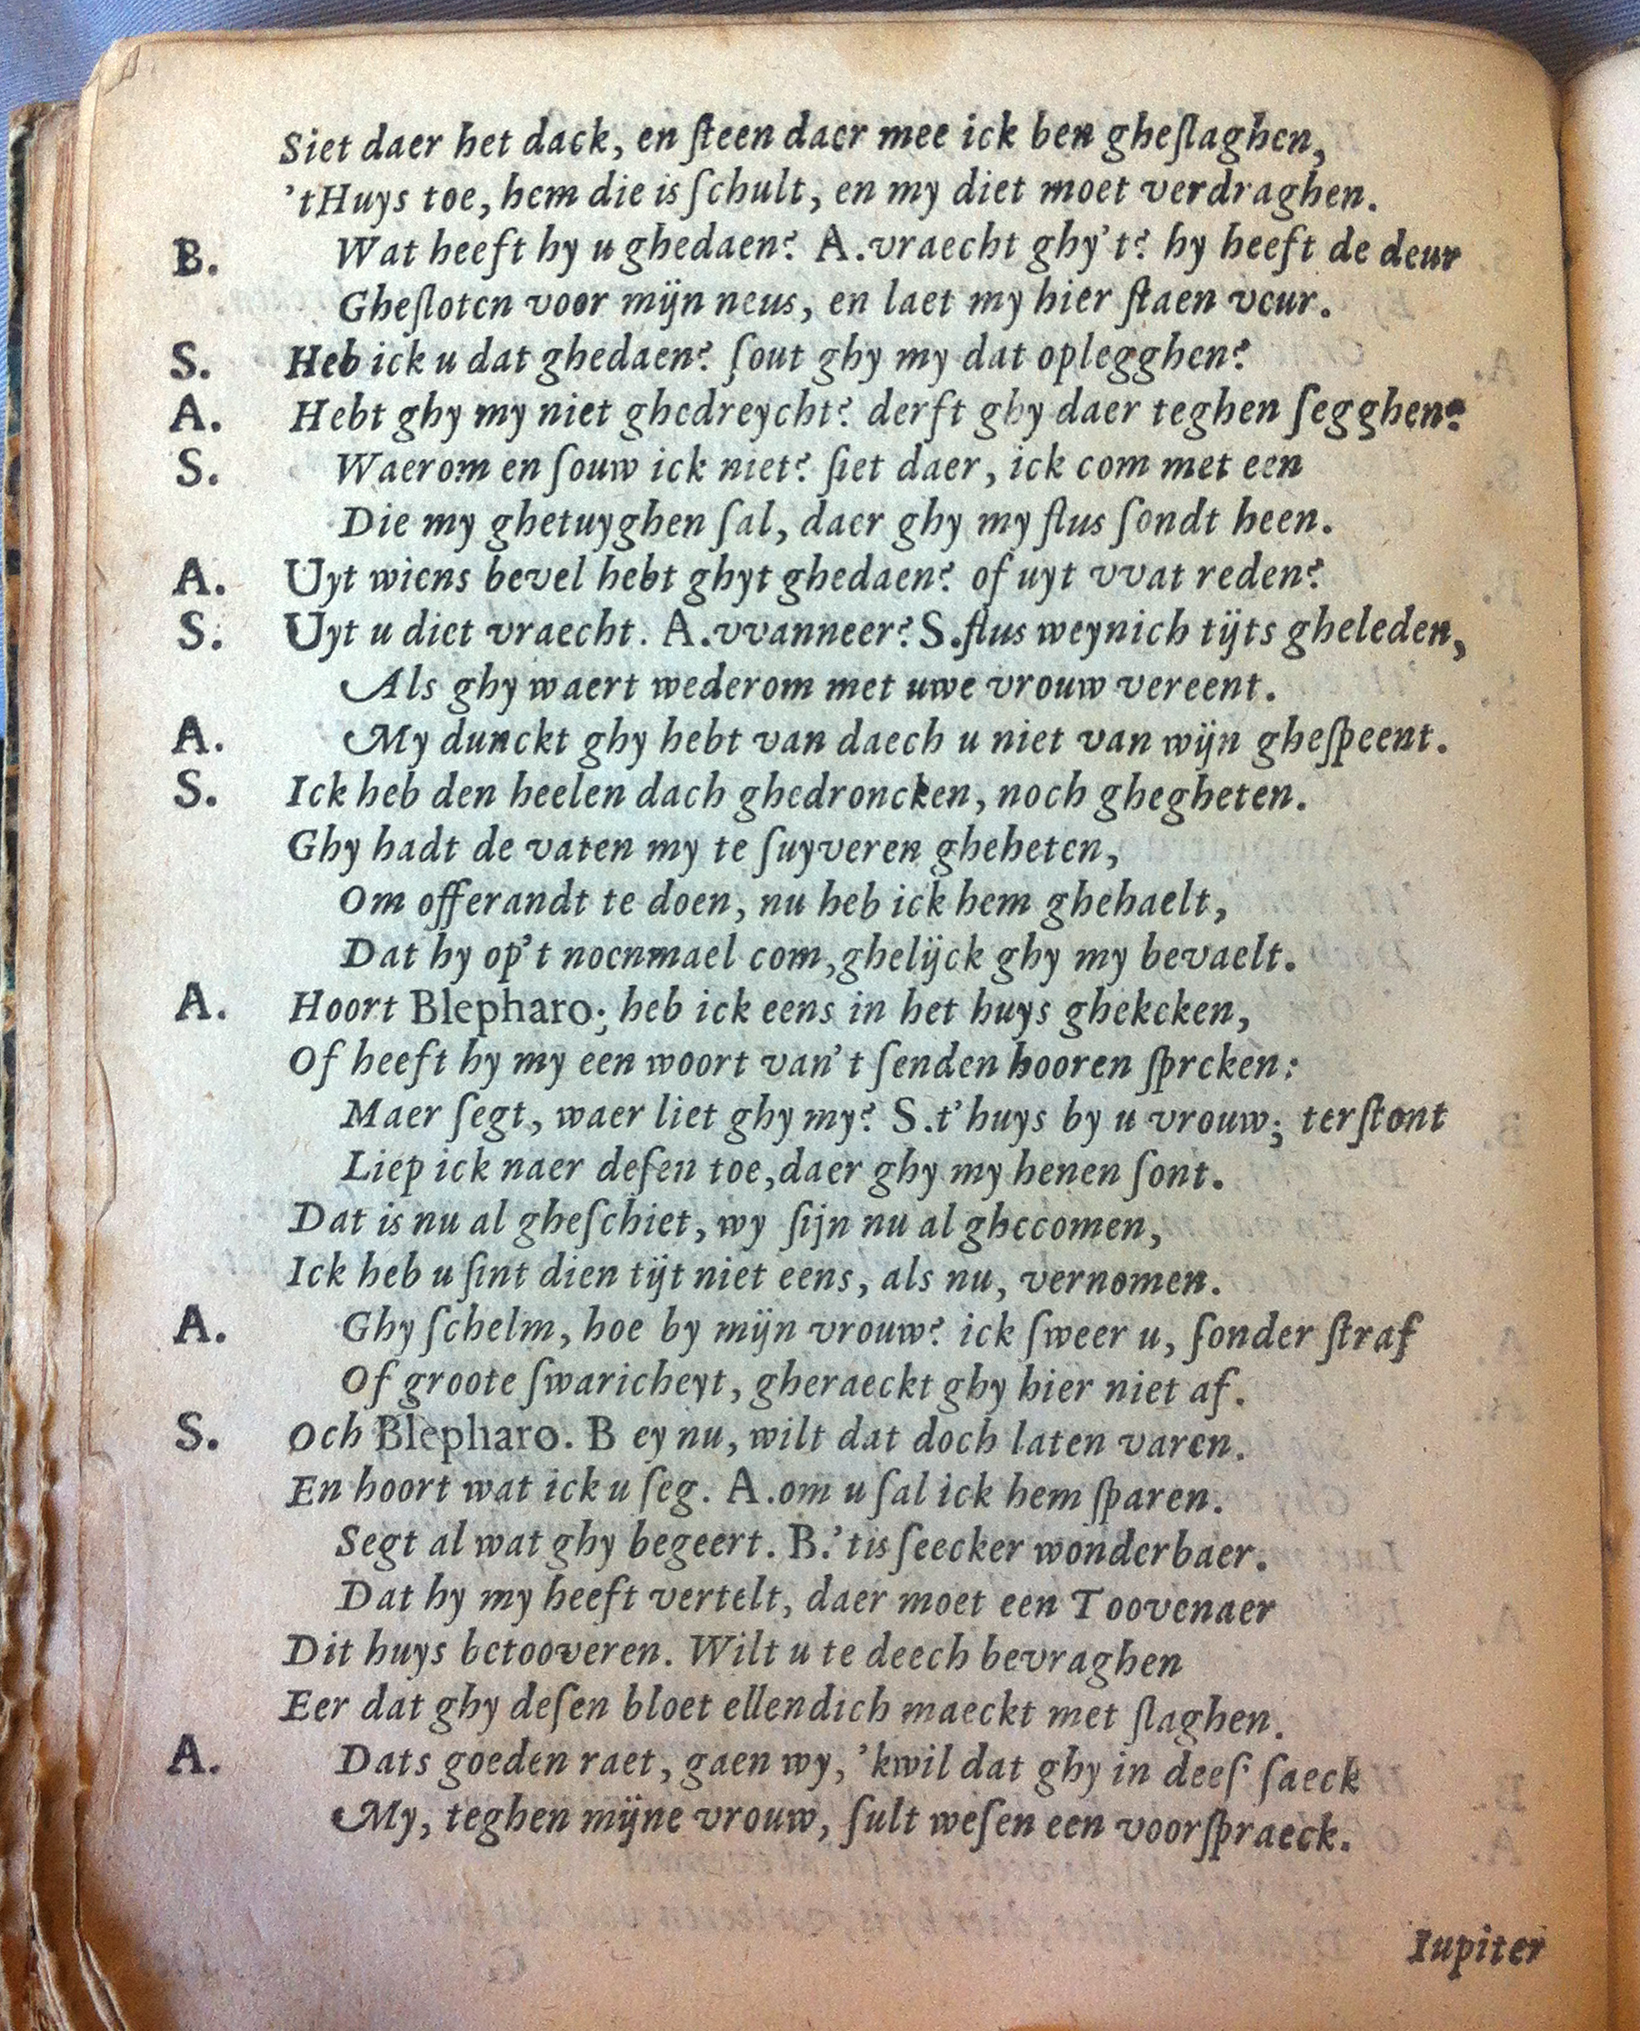 Siet daer het dack, en ſteen daer mee ick ben gheſlaghen,
'tHuys toe, hem die is ſchult, en my diet moet verdraghen.
B. Wat heeft hy u ghedaen? A.vraecht ghy't? hy heeft de deur
Gheſloten voor mijn neus, en laet my hier ſtaen veur.
S. Heb ick u dat ghedaen? ſout ghy my dat oplegghen?
A. Hebt ghy my niet ghedreycht? derft ghy daer teghen ſegghen?
S. Waerom en ſouw ick niet? ſiet daer, ick com met een
Die my ghetuyghen ſal, daer ghy my flus ſondt heen.
A. Uyt wiens bevel hebt ghyt ghedaen? of uyt vvat reden?
S. Uyt u diet vraecht. A.vvanneer? S.flus weynich tijts gheleden,
Als ghy waert wederom met uwe vrouw vereent.
A. My dunckt ghy hebt van daech u niet van wijn gheſpeent.
S. Ick heb den heelen dach ghedroncken, noch ghegheten.
Ghy hadt de vaten my te ſuyveren gheheten,
Om offerandt te doen, nu heb ick hem ghehaelt,
Dat hy op't nocnmael com,ghelijck ghy my bevaelt.
A. Hoort Blepharo; heb ick eens in het huys ghekeken,
Of heeft hy my een woort van't ſenden hooren ſpreken:
Maer ſegt, waer liet ghy my? S.t'huys by u vrouw; terſtont
Liep ick naer deſen toe,daer ghy my henen ſont.
Dat is nu al gheſchiet, wy ſijn nu al ghecomen,
Ick heb u ſint dien tijt niet eens, als nu, vernomen.
A. Ghy ſchelm, hoe by mijn vrouw? ick ſweer u, ſonder ſtraf
Of groote ſwaricheyt, gheraeckt ghy hier niet af.
S. Och Blepharo. B ey nu, wilt dat doch laten varen.
En hoort wat ick u ſeg. A.om u ſal ick hem ſparen.
Segt al wat ghy begeert. B.'tis ſeecker wonderbaer.
Dat hy my heeft vertelt, daer moet een Toovenaer
Dit huys betooveren. Wilt u te deech bevraghen
Eer dat ghy deſen bloet ellendich maeckt met ſlaghen.
A. Dats goeden raet, gaen wy, 'kwil dat ghy in deeſ' ſaeck
My, teghen mijne vrouw, ſult weſen een voorſpraeck.
Iupiter